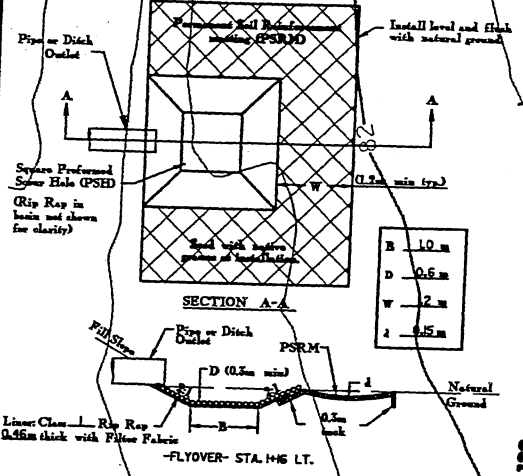 Permanent Soil Reinforcement
matting (PSRM)
Install level and flush
with natural ground
Pipe or Ditch
Outlet
A
A
82
Square Preformed
Scour Hole (PSH)
(Rip Rap in
basin not shown
for clarity)
W
min typ.)
Seed with native
grasses at installation.
B 1.0 m
D 0.6 m
W 1.2 m
d 0.15 m
SECTION A-A
Fill Slope
Pipe or Ditch
Outlet
D (0.3m min)
PSRM
d
Natural
Ground
Liner: Class I Rip Rap
0.46m thick with Filter Fabric
B
0.3m
-FLYOVER- STA. 1+16 LT.